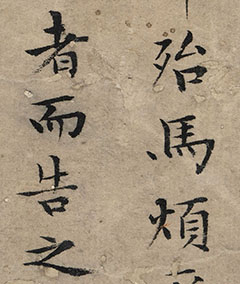 殆馬煩
者而告之